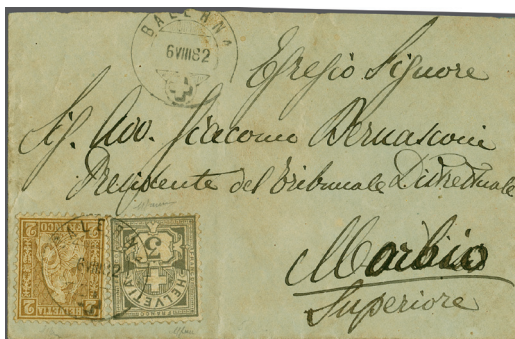 BALERNA
6 VIII 82
Egregio Signore
Sig. Avv. Giacomo Bernasconi
Presidente del Tribunale Distrettuale
Morbio
Superiore
2
FRANCO
HELVETIA
2
BALERNA
6 VIII 82
5
HELVETIA
FRANCO